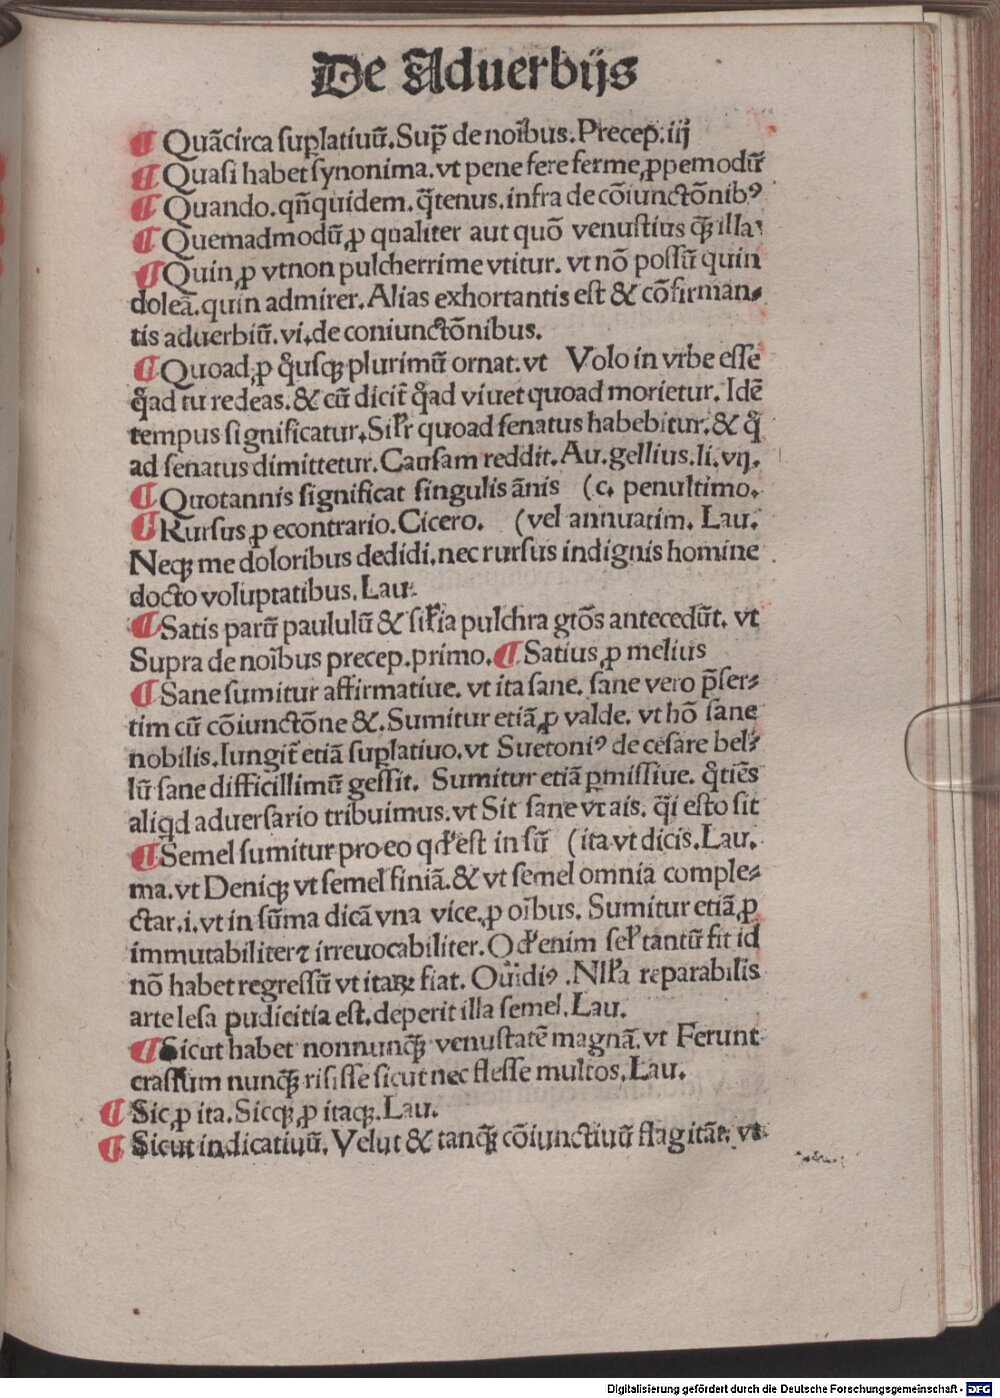 De Aduerbijs
¶ Quãcirca suꝑlatiuũ. Sup̄ de noĩbus. Precep. iij
¶ Quasi habet synonima. vt pene fere ferme, ꝓpemodũ
¶ Quando. qñquidem. q̃tenus. infra de cõiunctõnibꝰ
¶ Quemadmodũ, ꝓ qualiter aut quõ venustius qꝫ̃ illa
¶ Quin, ꝓ vtnon pulcherrime vtitur. vt nõ possũ quin
doleã. quin admirer. Alias exhortantis est & cõfirman⸗
tis aduerbiũ. vi. de coniunctõnibus.
¶ Quoad, ꝓ q̊usqꝫ plurimũ ornat. vt Volo in vrbe esse
q̊ad tu redeas. & cũ dicit̃ q̊ad viuet quoad morietur. Idẽ
tempus significatur. Sil̃r quoad senatus habebitur. & q̊
ad senatus dimittetur. Causam reddit. Au. gellius. li. vij.
¶ Quotannis significat singulis ãnis (c. penultimo.
¶ Rursus, ꝓ econtrario. Cicero. (vel annuatim. Lau.
Neqꝫ me doloribus dedidi. nec rursus indignis homine
docto voluptatibus. Lau.
¶ Satis parũ paululũ & sil̃ia pulchra gtõs antecedũt. vt
Supra de noĩbus precep. primo. ¶ Satius, ꝓ melius
¶ Sane sumitur affirmatiue. vt ita sane. sane vero p̃ser⸗
tim cũ cõiunctõne &. Sumitur etiã, ꝓ valde. vt hõ sane
nobilis. Iungit̃ etiã suꝑlatiuo. vt Suetoniꝰ de cesare bel⸗
lũ sane difficillimũ gessit. Sumitur etiã ꝑmissiue. q̊tiẽs
aliqd aduersario tribuimus. vt Sit sane vt ais. q̃i esto sit
¶ Semel sumitur pro eo qd̃ est in sũ (ita vt dicis. Lau.
ma. vt Deniqꝫ vt semel finiã. & vt semel omnia comple⸗
ctar. i. vt in sũma dicã vna vice, ꝓ oĩbus. Sumitur etiã, ꝓ
immutabiliter ⁊ irreuocabiliter. Qd̃ enim sel̃ tantũ fit id
nõ habet regressũ vt itaꝝ fiat. Ouidiꝰ. Nll̃a reparabilis
arte lesa pudicitia est. deperit illa semel. Lau.
¶ Sicut habet nonnunqꝫ̃ venustatẽ magnã. vt Ferunt
crassum nunqꝫ̃ risisse sicut nec flesse multos. Lau.
¶ Sic, ꝓ ita. Sicqꝫ, ꝓ itaqꝫ. Lau.
¶ Sicut indicatiuũ. Velut & tanqꝫ̃ cõiunctiuũ flagitãt. vt
Digitalisierung gefördert durch die Deutsche Forschungsgemeinschaft - DFG